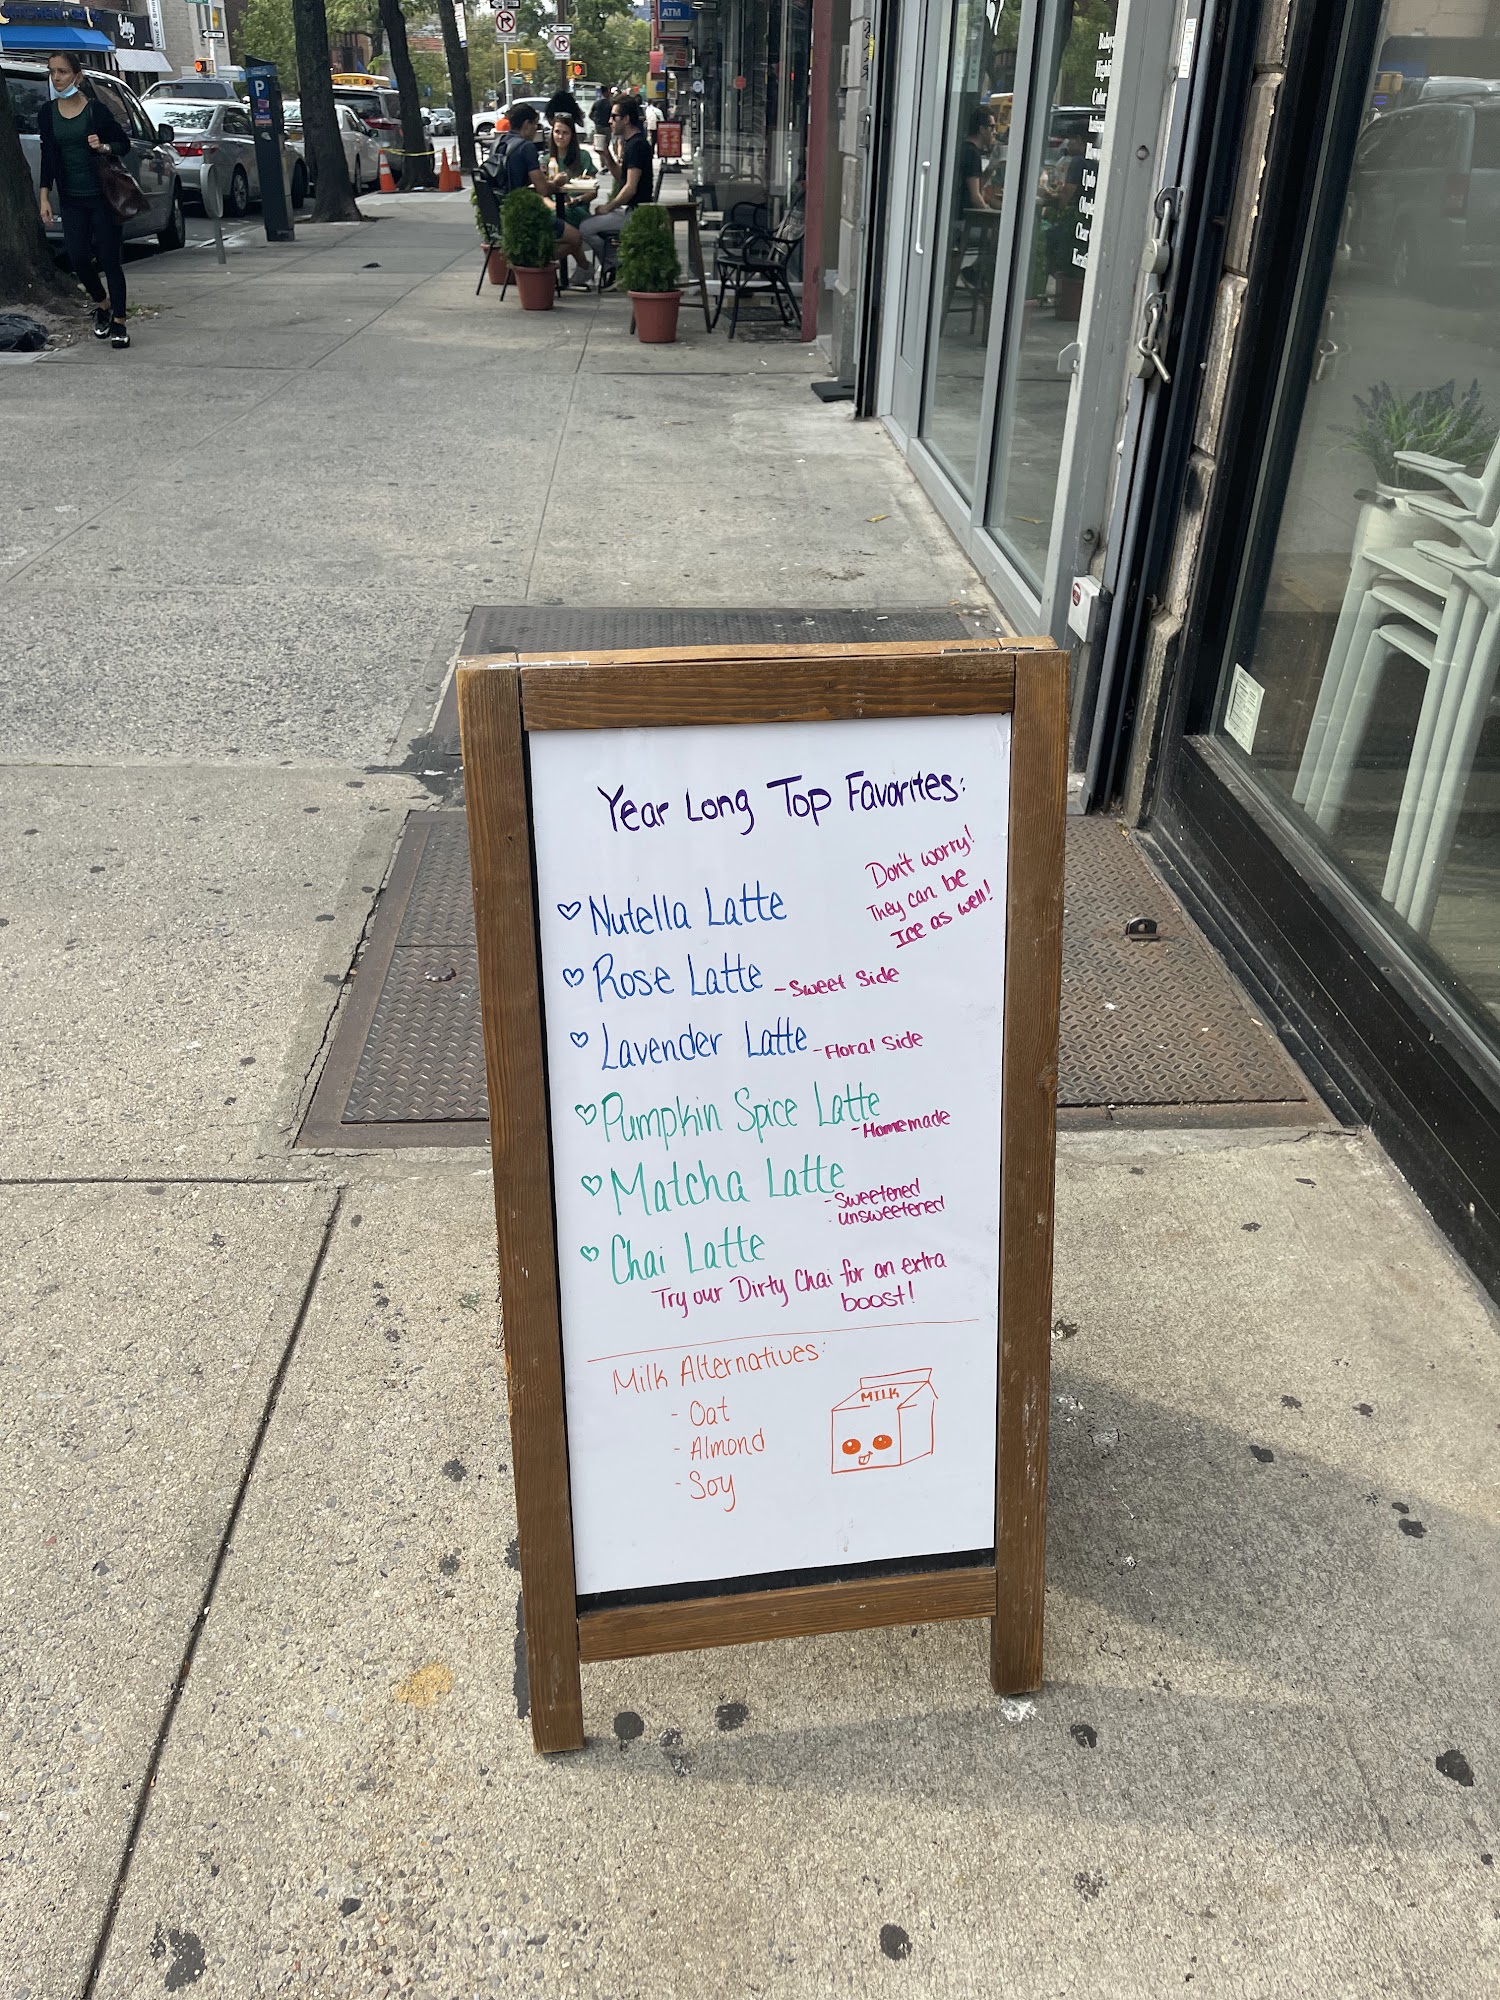 ATM
P
Year Long Top Favorites:
Don't worry!
They can be
Ice as well!
Nutella Latte
Rose Latte - Sweet Side
Lavender Latte - Floral Side
Pumpkin Spice Latte
- Homemade
Matcha Latte
- Sweetened
- unsweetened
Chai Latte
Try our Dirty Chai for an extra
boost!
Milk Alternatives:
- Oat
- Almond
- Soy
MILK